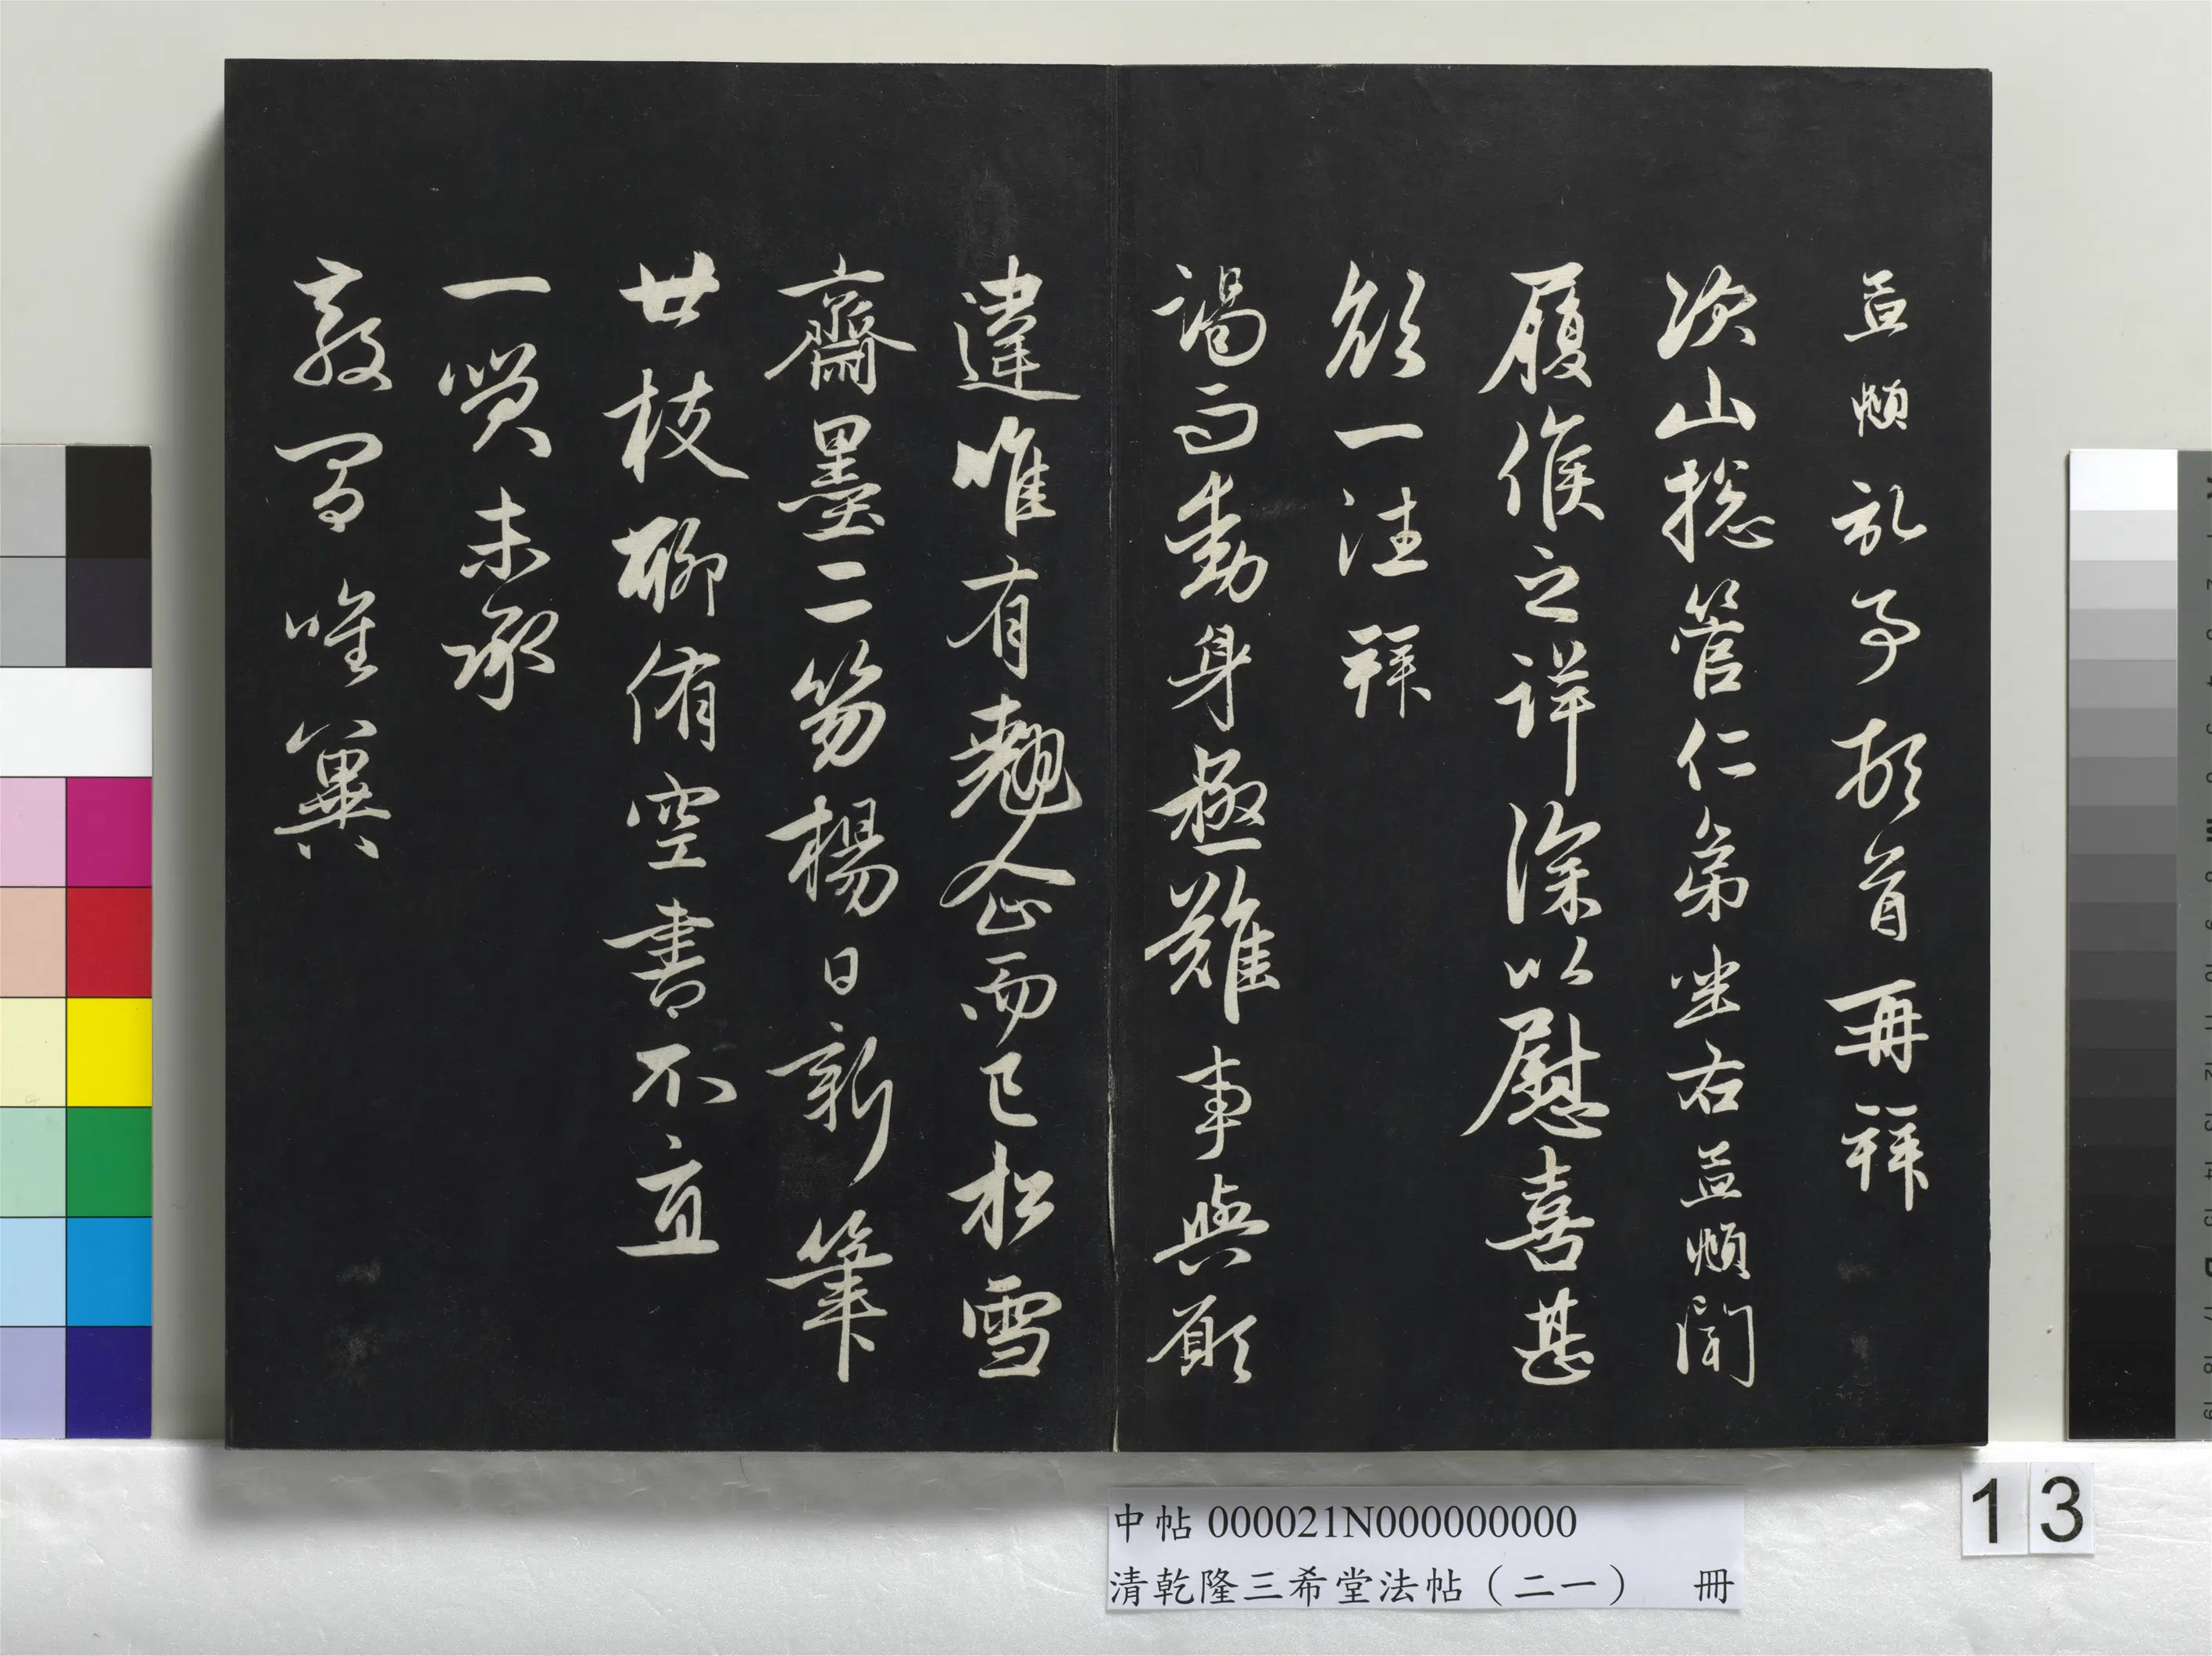 孟頫記事頓首再拜
次山総管仁弟坐右孟頫聞
履候之詳深以慰喜甚
欲一往拜
謁而動身極難事與願
違唯有翹企而已松雪
齋墨二笏楊日新筆
廿枝聊侑空書不直
一笑未承
教間唯冀
中帖 000021N000000000
清乾隆三希堂法帖（二一） 冊
13